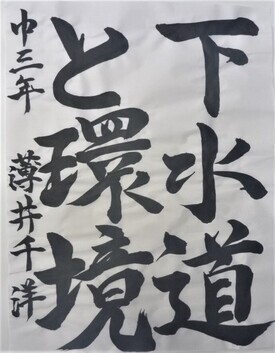 下水道
と環境
中三年 薄井千洋